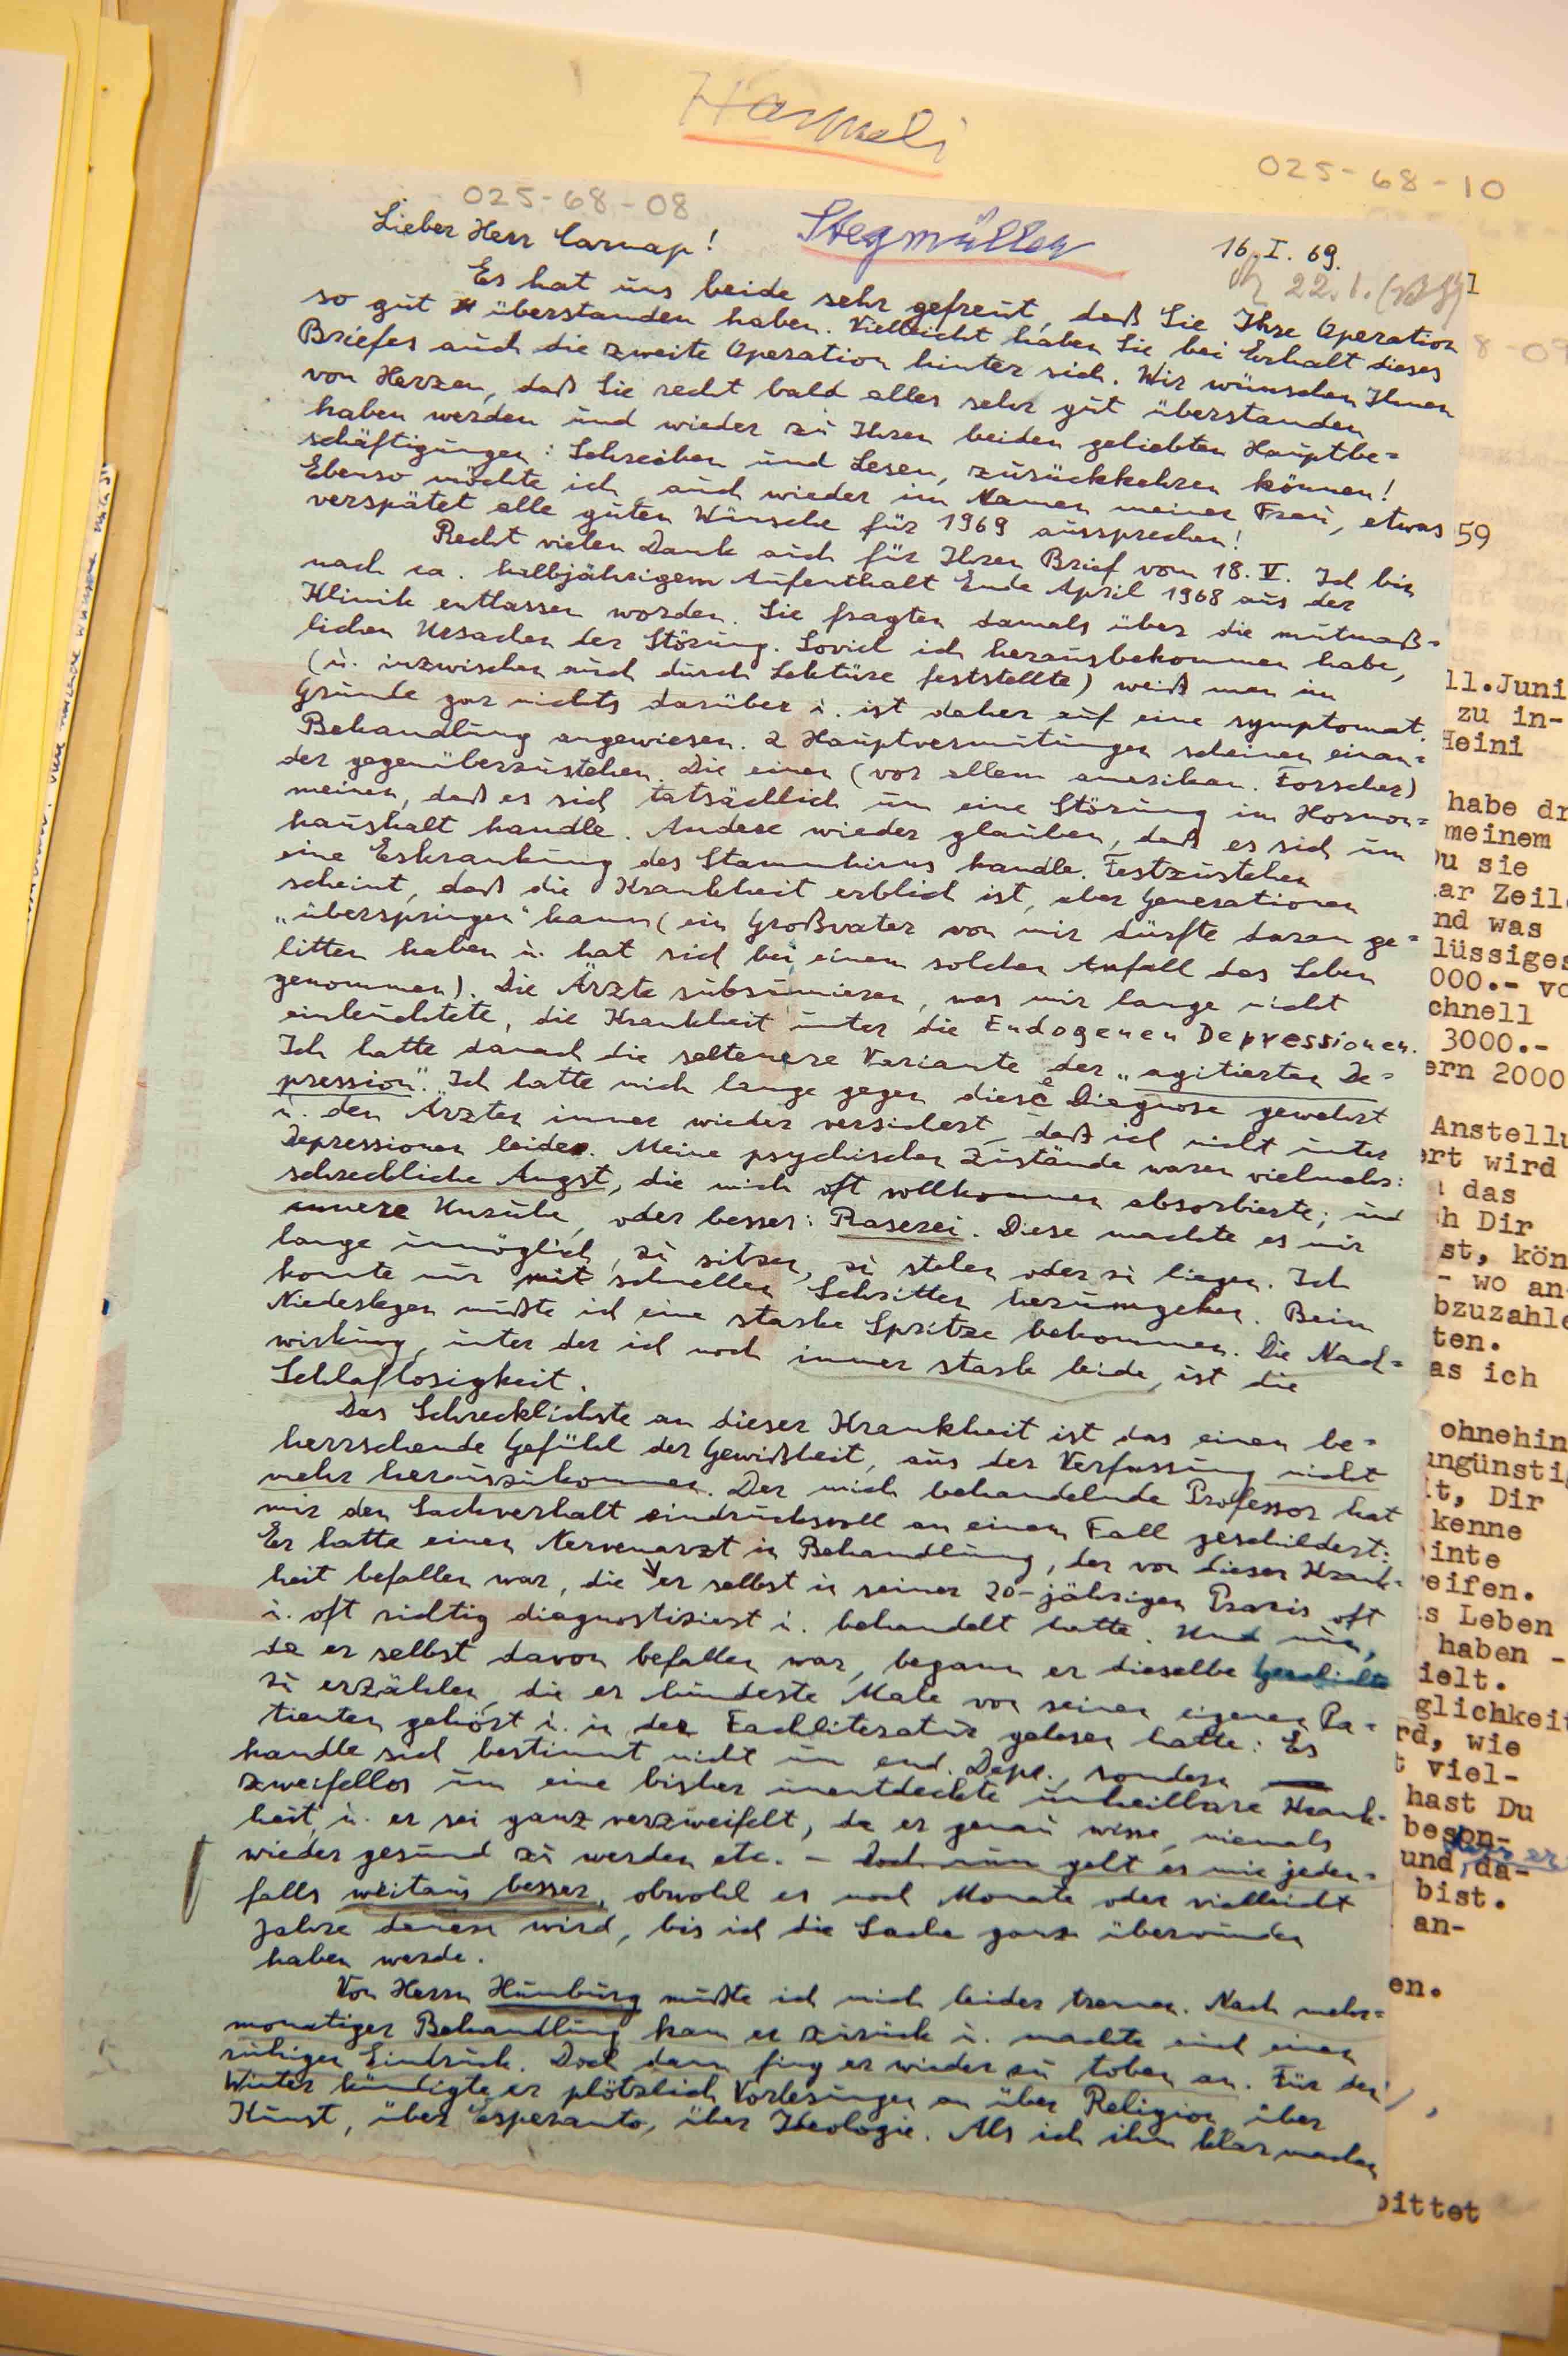 025-68-10
025-68-08
Stegmüller
Lieber Herr Carnap!
16.I.69.
22.1.
Es hat uns beide sehr gefreut, daß Sie Ihre Operation
so gut überstanden haben. Vielleicht haben Sie bei Erhalt dieses
Briefes auch die zweite Operation hinter sich. Wir wünschen Ihnen
von Herzen, daß Sie recht bald alles sehr gut überstanden
haben werden und wieder zu Ihren beiden geliebten Hauptbe=
schäftigungen: Schreiben und Lesen, zurückkehren können!
Ebenso möchte ich, auch wieder im Namen meiner Frau, etwas
verspätet alle guten Wünsche für 1969 aussprechen!
Recht vielen Dank auch für Ihren Brief vom 18.V. Ich bin
nach ca. halbjährigem Aufenthalt Ende April 1968 aus der
Klinik entlassen worden. Sie fragten damals über die mutmaß=
lichen Ursachen der Störung. Soviel ich herausbekommen habe,
(u. inzwischen auch durch Lektüre feststellte) weiß man im
Grunde gar nichts darüber u. ist daher auf eine symptomat.
Behandlung angewiesen. 2 Hauptvermutungen scheinen einan=
der gegenüberzustehen. Die einen (vor allem amerikan. Forscher)
meinen, daß es sich tatsächlich um eine Störung im Hormon=
haushalt handle. Andere wieder glauben, daß es sich um
eine Erkrankung des Stammhirns handle. Festzustehen
scheint, daß die Krankheit erblich ist, aber Generationen
„überspringen" kann (ein Großvater von mir dürfte daran ge=
litten haben u. hat sich bei einem solchen Anfall das Leben
genommen). Die Ärzte subsumieren, was mir lange nicht
einleuchtete, die Krankheit unter die Endogenen Depressionen.
Ich hatte danach die seltenere Variante der „agitierten De=
pression". Ich hatte mich lange gegen diese Diagnose gewehrt
u. den Ärzten immer wieder versichert, daß ich nicht unter
Depressionen leide. Meine psychischen Zustände waren vielmehr:
schreckliche Angst, die mich oft vollkommen absorbierte; und
innere Unruhe, oder besser: Raserei. Diese machte es mir
lange unmöglich, zu sitzen, zu stehen oder zu liegen. Ich
konnte nur mit schnellen Schritten herumgehen. Beim
Niederlegen mußte ich eine starke Spritze bekommen. Die Nach=
wirkung, unter der ich noch immer stark leide, ist die
Schlaflosigkeit.
Das Schrecklichste an dieser Krankheit ist das einen be=
herrschende Gefühl der Gewißheit, aus der Verfassung nicht
mehr herauszukommen. Der mich behandelnde Professor hat
mir den Sachverhalt eindrucksvoll an einem Fall geschildert:
Er hatte einen Nervenarzt in Behandlung, der von dieser Krank=
heit befallen war, die er selbst in seiner 20-jährigen Praxis oft
u. oft richtig diagnostiziert u. behandelt hatte. Und nun,
da er selbst davon befallen war, begann er dieselbe Geschichte
zu erzählen, die er hunderte Male von seinen eigenen Pa=
tienten gehört u. in der Fachliteratur gelesen hatte: Es
handle sich bestimmt nicht um end. Depr., sondern
zweifellos um eine bisher unentdeckte unheilbare Krank=
heit, u. er sei ganz verzweifelt, da er genau wisse, niemals
wieder gesund zu werden etc. — Doch nun geht es mir jeden=
falls weitaus besser, obwohl es noch Monate oder vielleicht
Jahre dauern wird, bis ich die Sache ganz überwunden
haben werde.
Von Herrn Humburg mußte ich mich leider trennen. Nach mehr=
monatiger Behandlung kam er zurück u. machte einen
ruhigen Eindruck. Doch dann fing er wieder zu toben an. Für den
Winter kündigte er plötzlich Vorlesungen an über Religion, über
Kunst, über Esperanto, über Theologie. Als ich ihm klar machen
59
11.Juni
zu in-
Heini
habe
meinem
sie
Zeil
was
lüssiges
000.-
chnell
3000.-
ern 2000
Anstellu
ert wird
das
h Dir
st, kön
- wo an
bzuzahle
ten.
as ich
ohnehin
ungünsti
t, Dir
kenne
inte
eifen.
s Leben
haben -
ielt.
glichkeit
rd, wie
viel-
hast Du
beson-
und da-
bist.
an-
en.
bittet